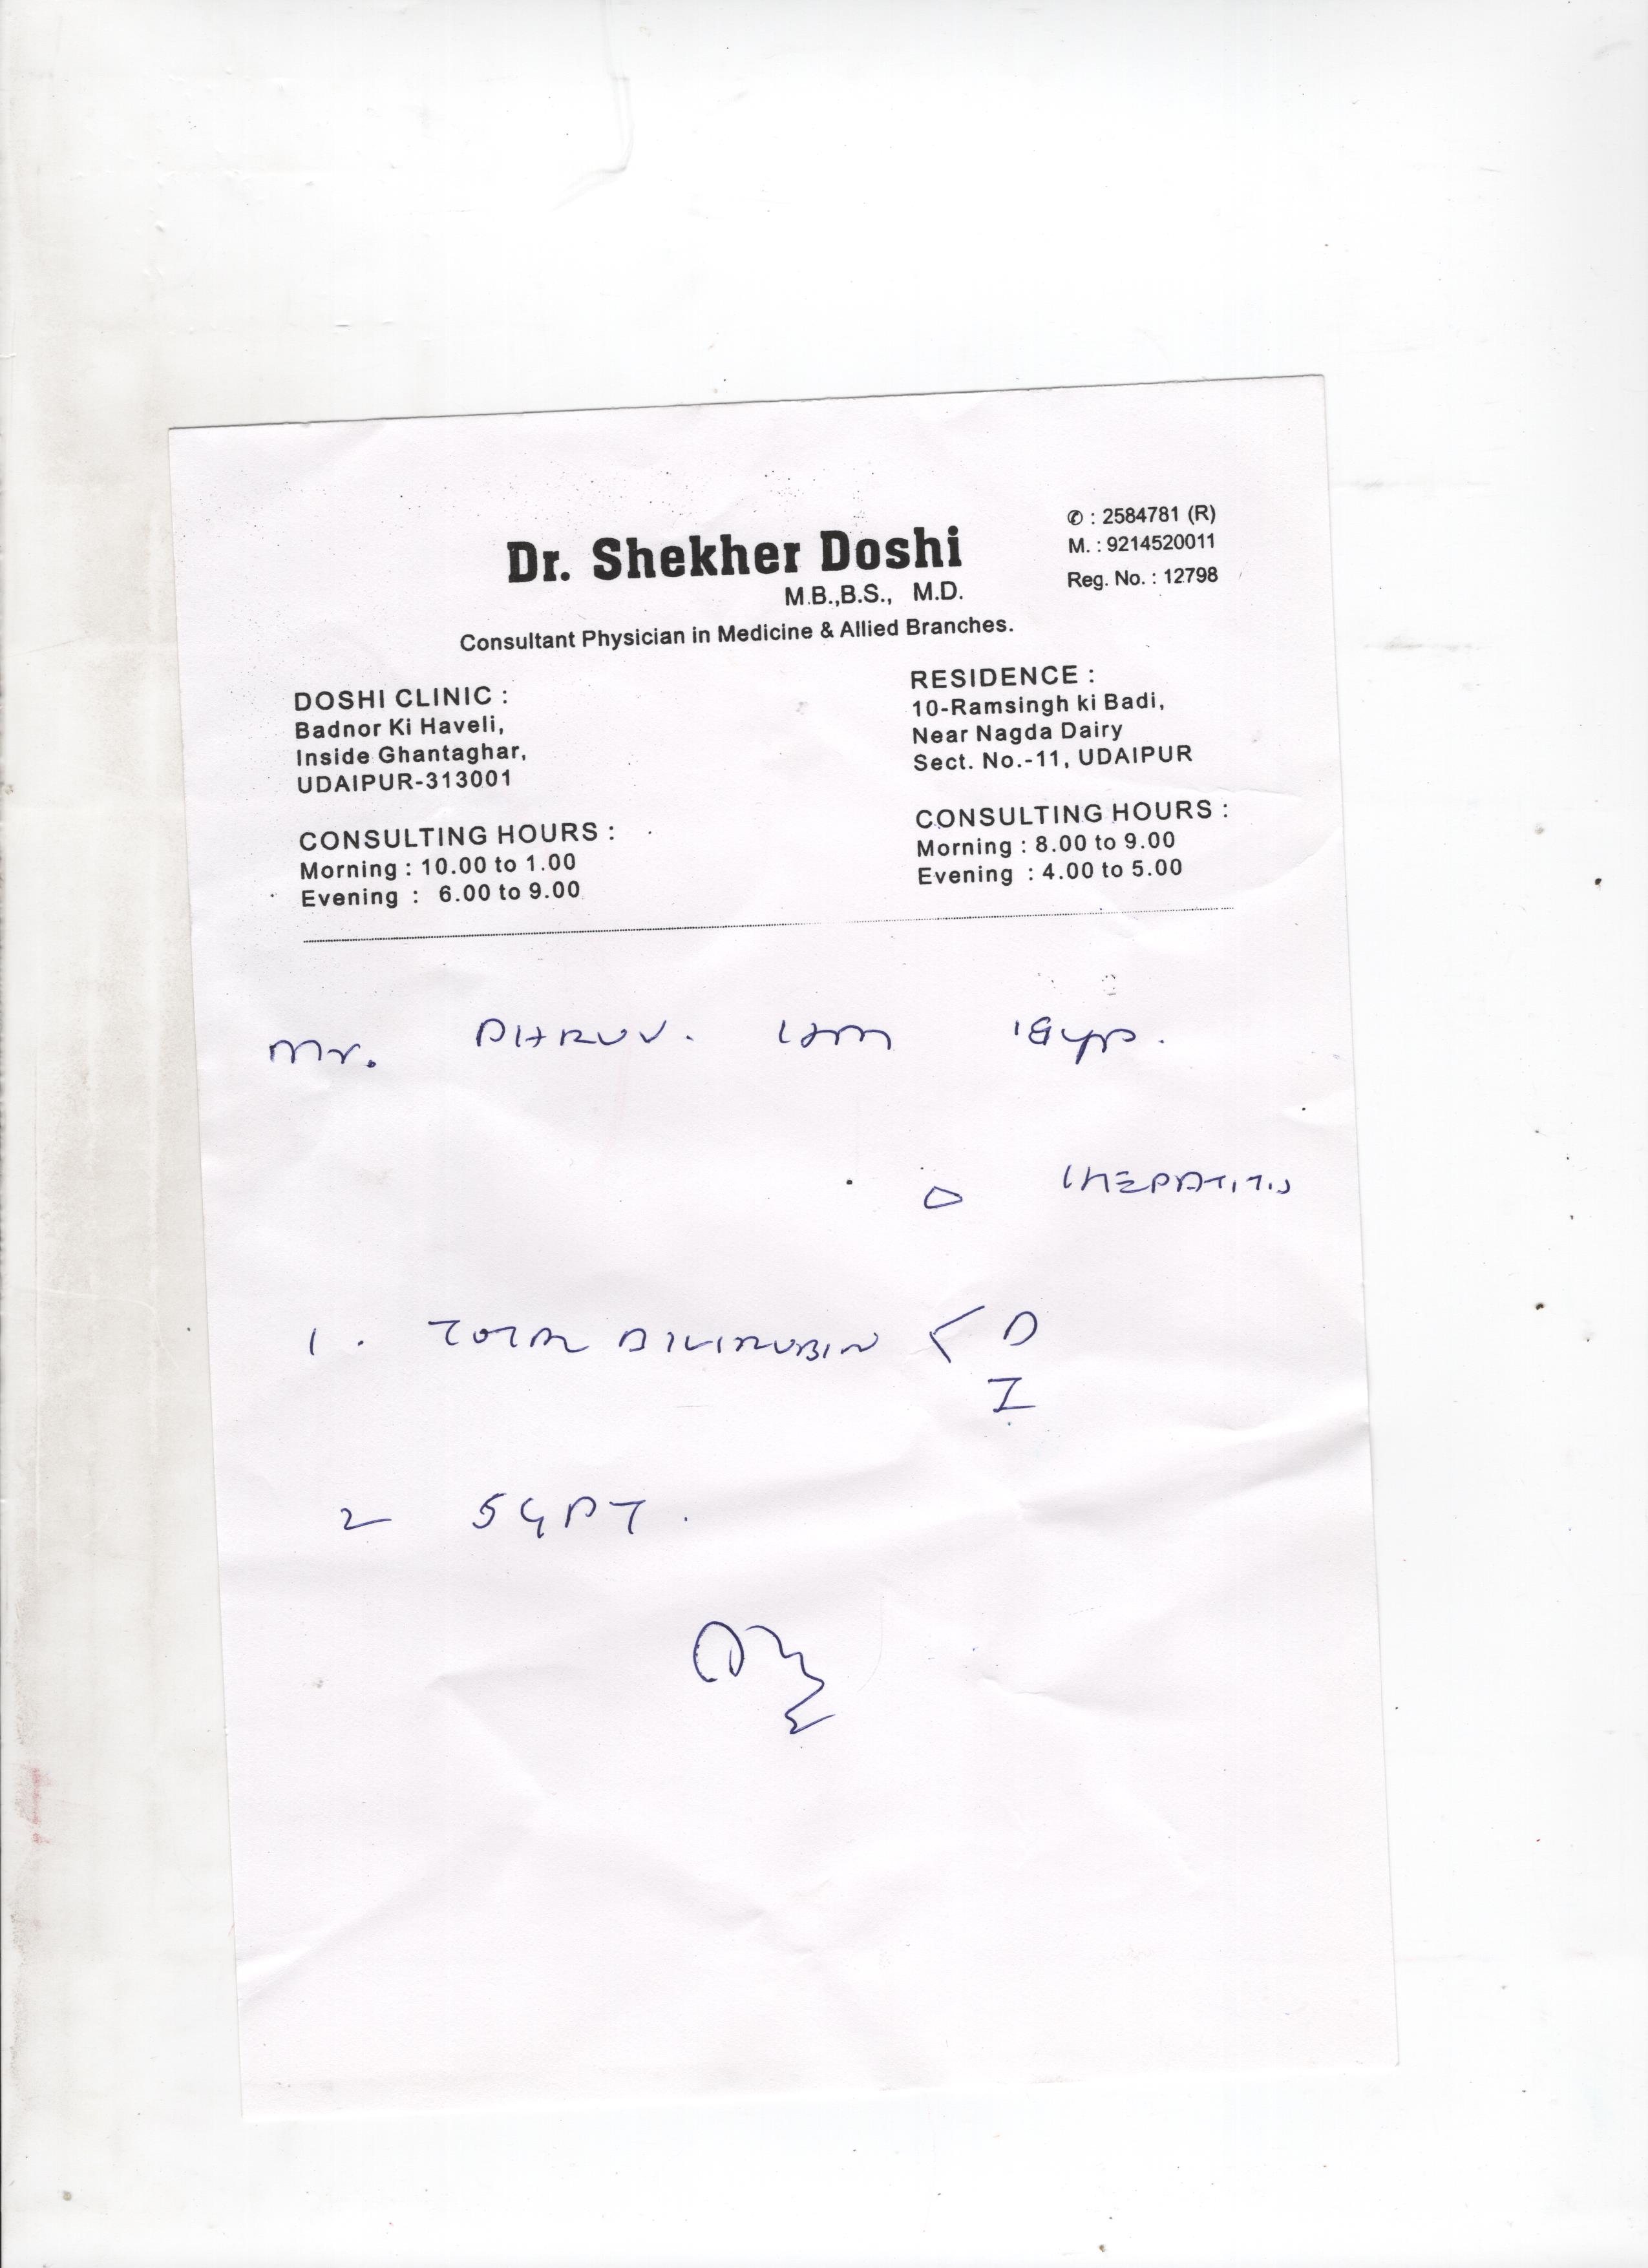 ✆ : 2584781 (R)
Dr. Shekher Doshi
M. : 9214520011
M.B.,B.S., M.D.
Reg. No. : 12798
Consultant Physician in Medicine & Allied Branches.
DOSHI CLINIC :
Badnor Ki Haveli,
Inside Ghantaghar,
UDAIPUR-313001
CONSULTING HOURS :
Morning : 10.00 to 1.00
Evening : 6.00 to 9.00
RESIDENCE :
10-Ramsingh ki Badi,
Near Nagda Dairy
Sect. No.-11, UDAIPUR
CONSULTING HOURS :
Morning : 8.00 to 9.00
Evening : 4.00 to 5.00
Mr. DHRUV. 18yrs.
HEPATITIS
1. TOTAL BILIRUBIN < D
I
2 SGPT.